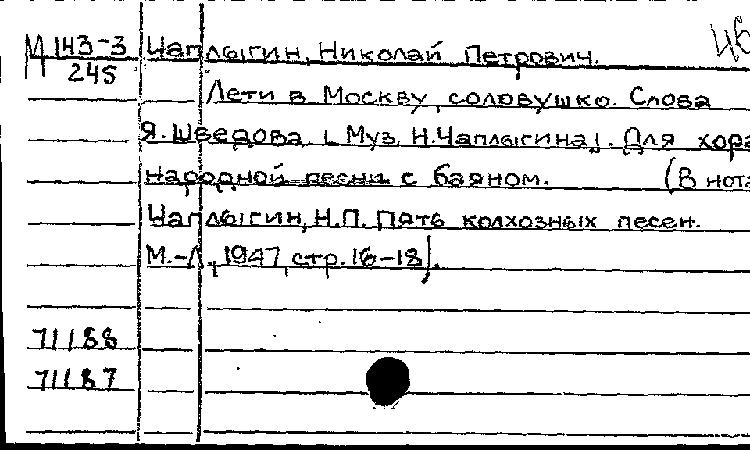 М 143-3 Чаплыгин, Николай Петрович. 46
245
Лети в Москву, соловушко. Слова
Я. Шведова. [Муз. Н. Чаплыгина]. Для хора
народной песни с баяном. (В нот
Чаплыгин, Н.П. Пять колхозных песен.
М.-Л., 1947, стр. 16-18).
71188
71187